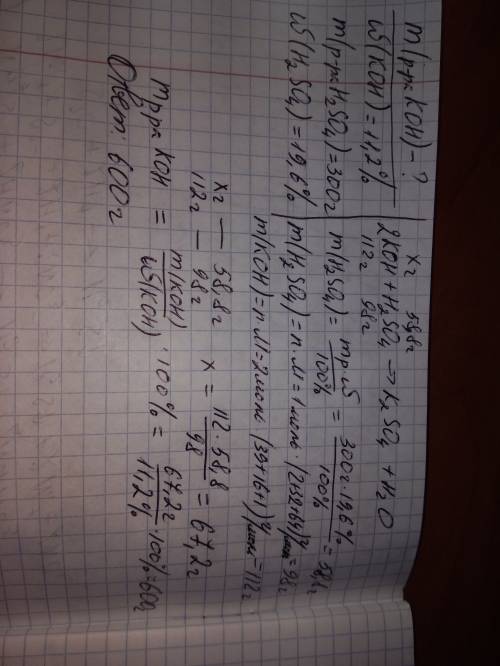 m(р-ра KOH) - ?
ω(KOH) = 11,2%
m(р-ра H₂SO₄) = 300г
ω(H₂SO₄) = 19,6%
xг 58,8г
2KOH + H₂SO₄ → K₂SO₄ + H₂O
112г 98г
m(H₂SO₄) = mр·ω / 100% = 300г·19,6% / 100% = 58,8г
m(H₂SO₄) = n·M = 1моль·(2+32+64)г/моль = 98г
m(KOH) = n·M = 2моль·(39+16+1)г/моль = 112г
xг — 58,8г
112г — 98г
x = 112·58,8 / 98 = 67,2г
mр-ра KOH = m(KOH) / ω(KOH) · 100% = 67,2г / 11,2% · 100% = 600г
Ответ: 600г